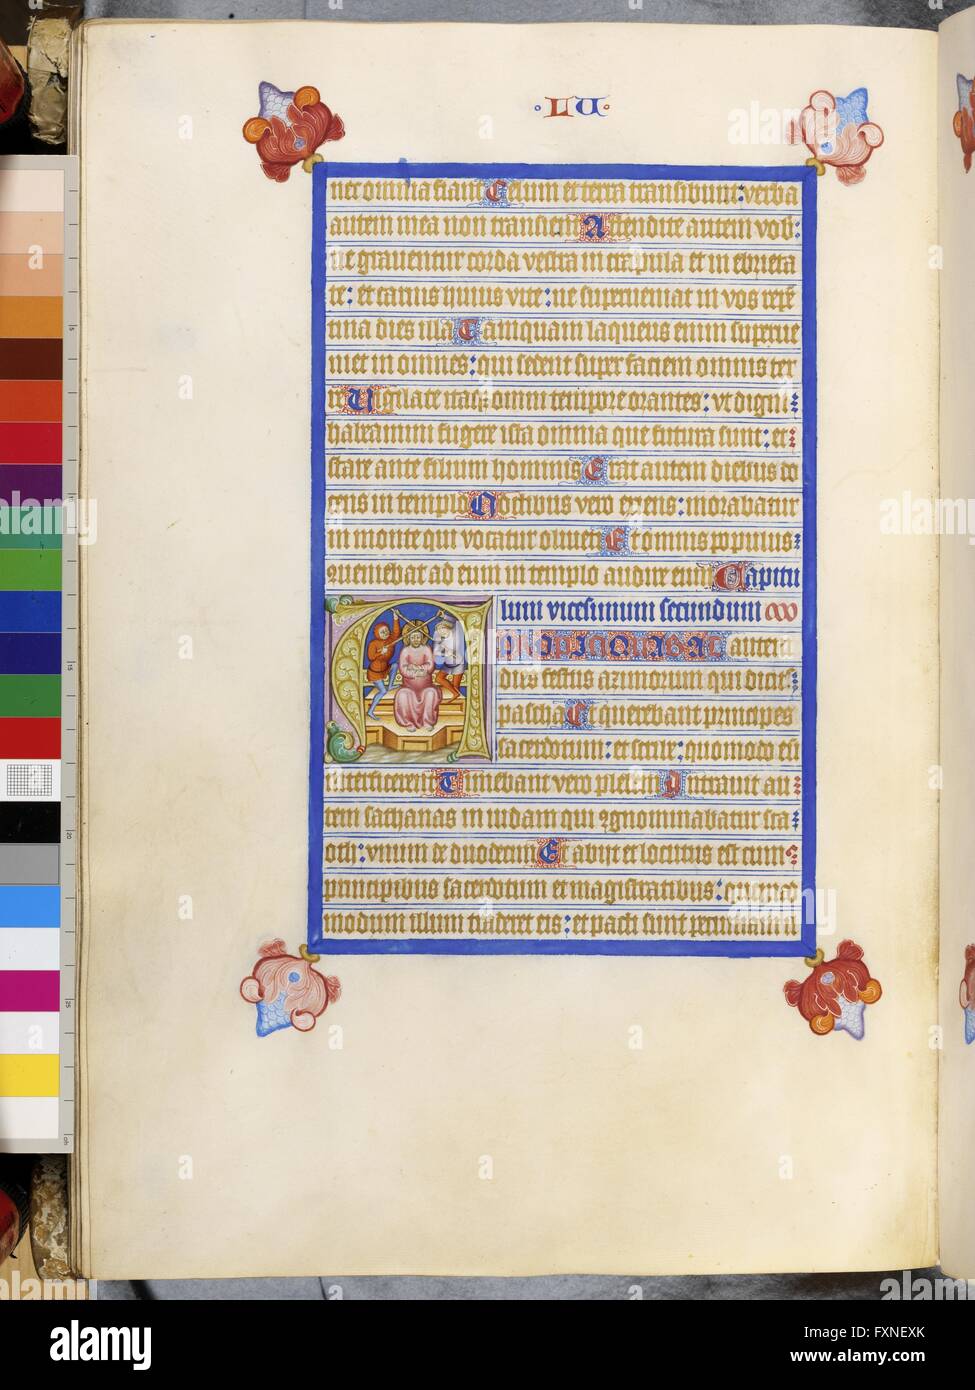 · L U ·
nec omnia fiant Celum et terra transibunt: verba
autem mea non transient Attendite autem vobis
ne graventur corda vestra in crapula et in ebrieta
te: et curis huius vite: ne superveniat in vos repen
tina dies illa Tamquam laqueus enim superve
niet in omnes: qui sedent super faciem omnis ter
re Vigilate itaque omni tempore orantes: ut digni
habeamini fugere ista omnia que futura sunt: et
stare ante filium hominis Erat autem diebus do
cens in templo Noctibus vero exiens: morabatur
in monte qui vocatur oliveti Et omnis populus
maneebat ad eum in templo audire eum Capitu
lum vicesimum secundum
APPROPINQUABAT autem
dies festus azimorum qui dicitur
pascha Et querebant principes
sacerdotum: et scribe: quomodo eum
interficerent Timebant vero plebem Intravit au
tem sathanas in iudam qui cognominabatur sca
rioth: unum de duodecim Et abiit et locutus est cum
principibus sacerdotum et magistratibus: quemad
modum illum traderet eis: et pacti sunt pecuniam il
alamy
FXNEXK
www.alamy.com